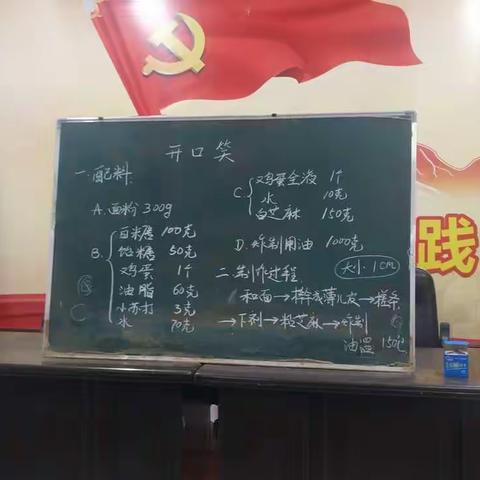 开口笑
一.配料.
A.面粉 300g
B.
白糖 100克
饴糖 50克
鸡蛋 1个
油脂 60克
小苏打 3克
水 70克
C.
鸡蛋全液 1个
水 10克
白芝麻 150克
D.炸制用油 1000克
二.制作过程
大小:1cm
和面→擀成薄儿皮→搓条
→下剂→粘芝麻→炸制
油温 150℃
践